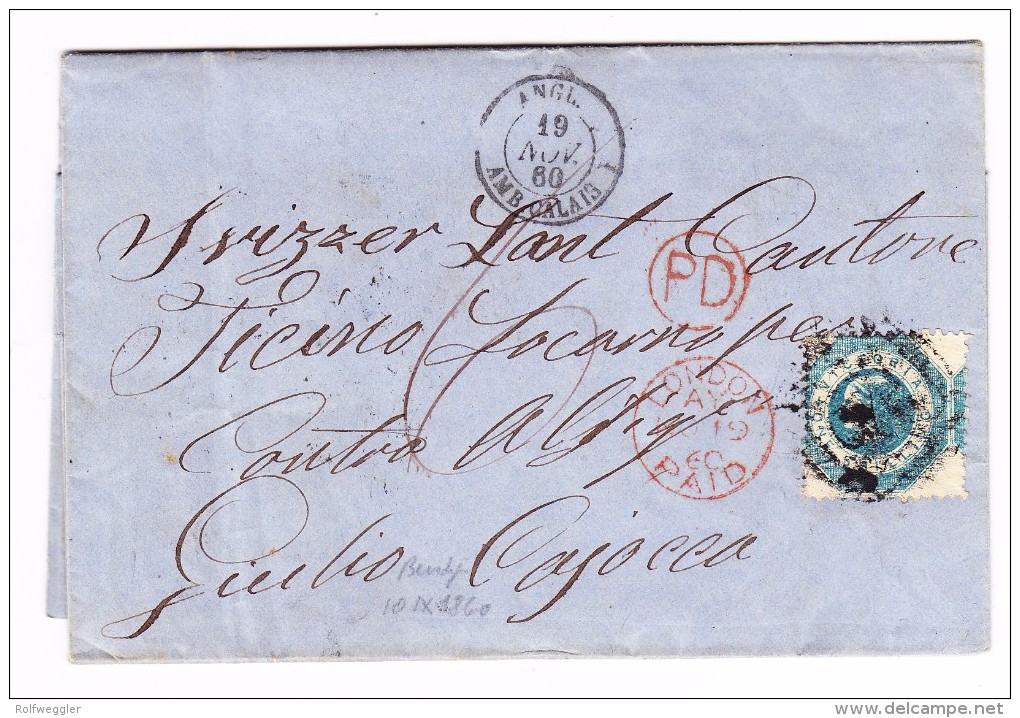 ANGL.
19
NOV.
60
AMB. CALAIS 1
Svizzer Lant Cantone
PD
Ticino Locarno per
Contra
LONDON
AY
19
60
PAID
VICTORIA
Giulio
10 IX 1860
Rolfweggler
www.delcampe.net